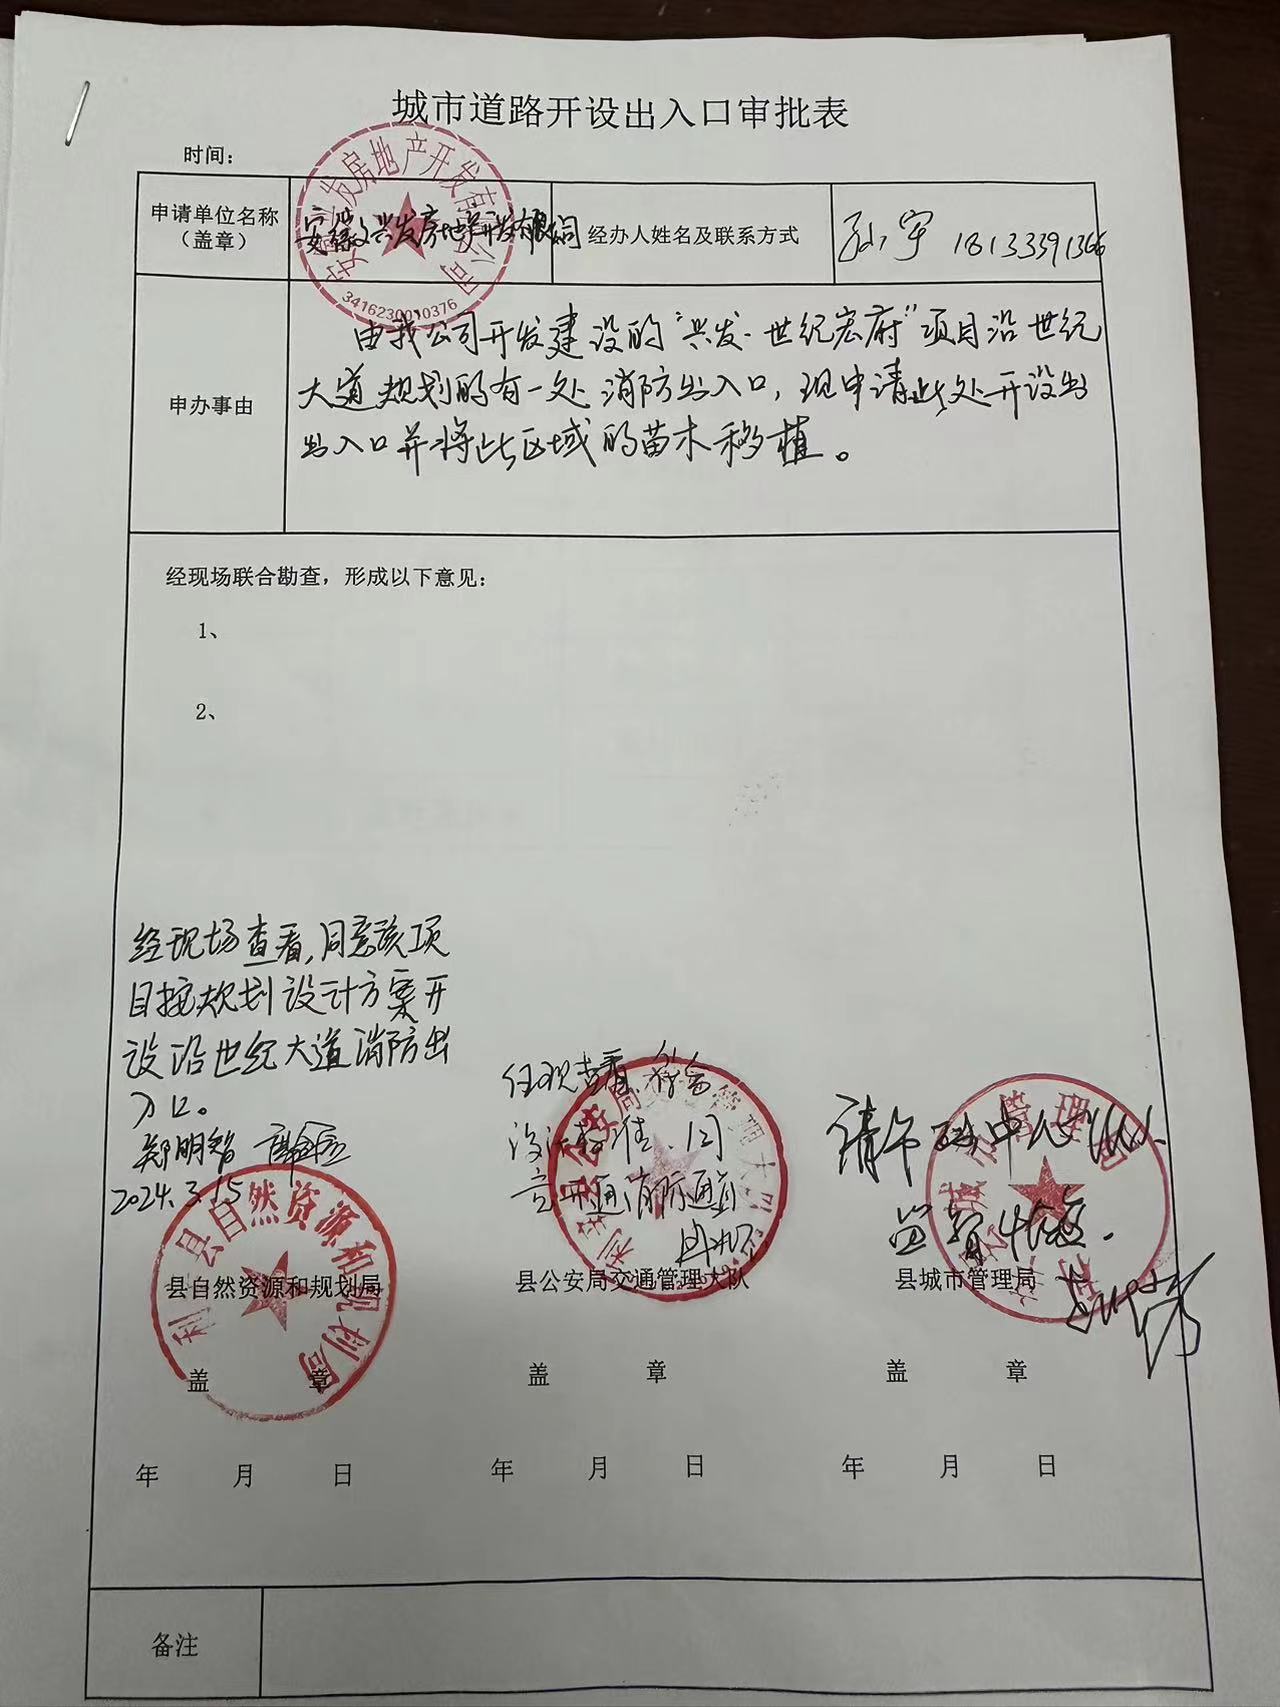 城市道路开设出入口审批表
时间：
申请单位名称
（盖章）
安徽兴发房地产开发有限公司
经办人姓名及联系方式
孙宇 18133391366
3416230010376
申办事由
由我公司开发建设的“兴发·世纪宏府”项目沿世纪
大道规划的有一处消防出入口，现申请此处开设出
出入口并将此区域的苗木移植。
经现场联合勘查，形成以下意见：
1、
2、
经现场查看，同意该项
目按规划设计方案开
设沿世纪大道消防出
入口。
郑明智
2024.3.15
利 县自然资源和规划局
县自然资源和规划局
盖 章
年 月 日
查看
意开通消防通道
县公安局交通管理大队
盖 章
年 月 日
请 中心
监管
县城市管理局
盖 章
年 月 日
备注